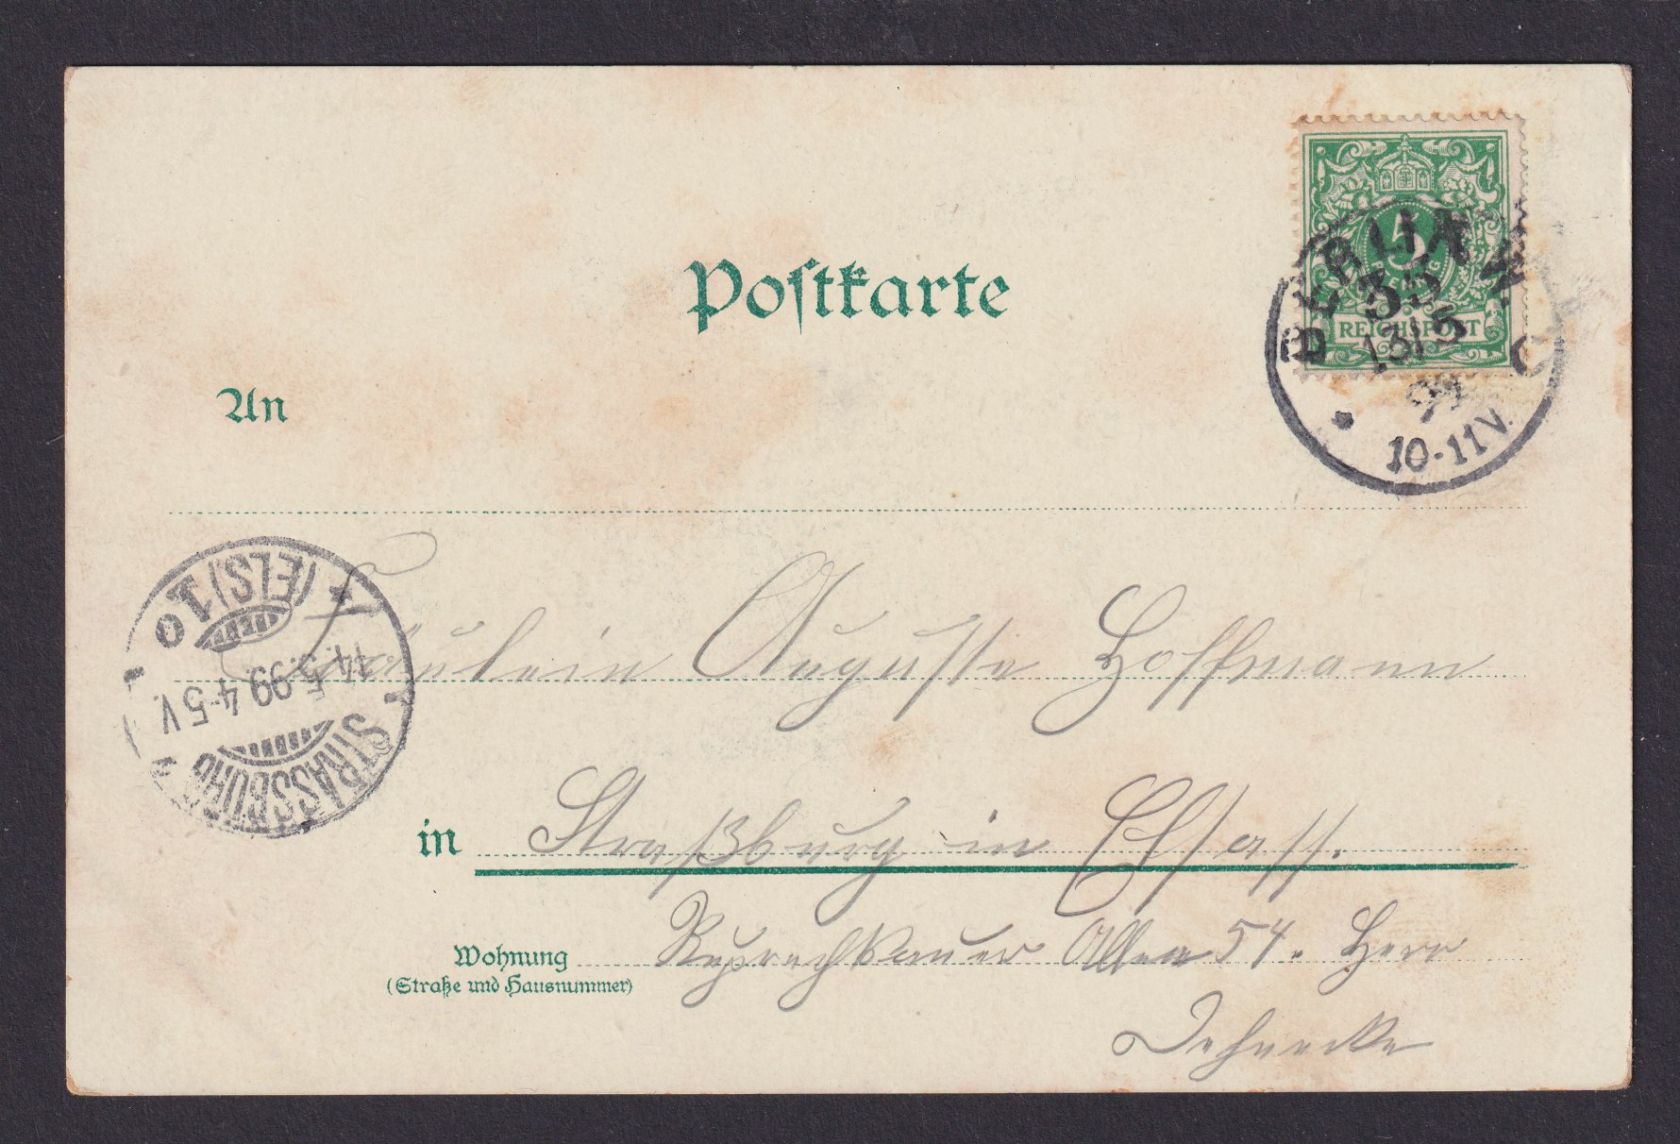 Postkarte
5
PFENNIG
REICHSPOST
BERLIN W.
35
13/5
99
10-11V.
An
Fräulein Auguste Hoffmann
(ELS) 10
14.5.99. 4-5V.
STRASSBURG
in Straßburg in Elsass.
Wohnung Ruprechtsauer Allee 54. Herr
(Straße und Hausnummer)